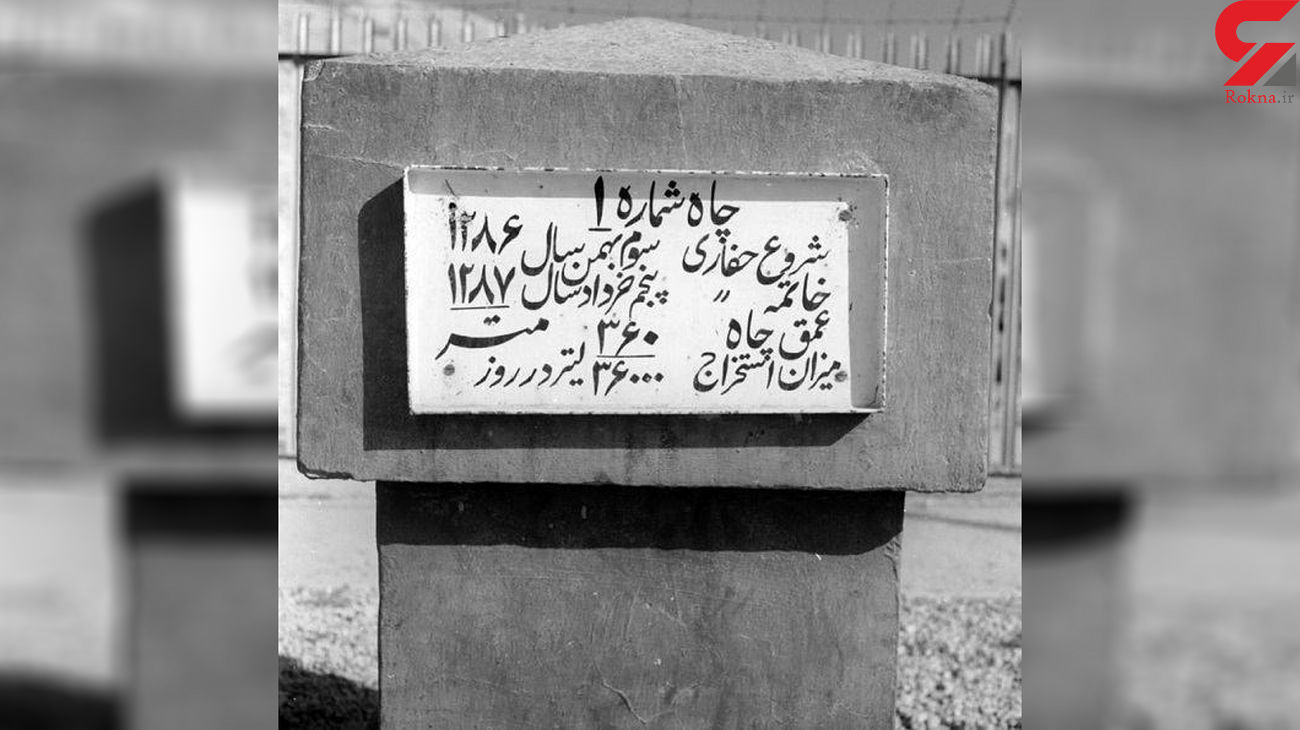 چاه شماره ۱
شروع حفاری سوم بهمن سال ۱۲۸۶
خاتمه " پنجم خرداد سال ۱۲۸۷
عمق چاه ۳۶۰ متر
میزان استخراج ۳۶۰۰۰ لیتر در روز
Rokna.ir